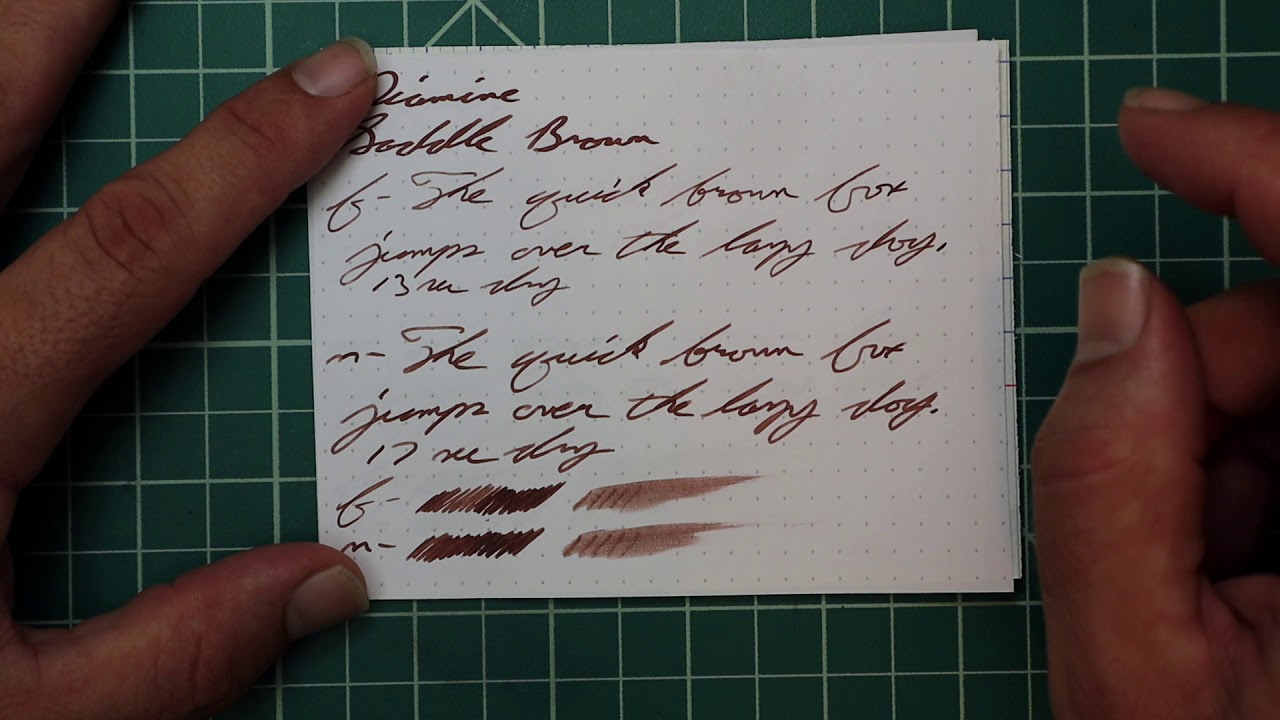 Diamine
Saddle Brown
f- The quick brown fox
jumps over the lazy dog.
13 sec dry
m- The quick brown fox
jumps over the lazy dog.
17 sec dry
f-
m-